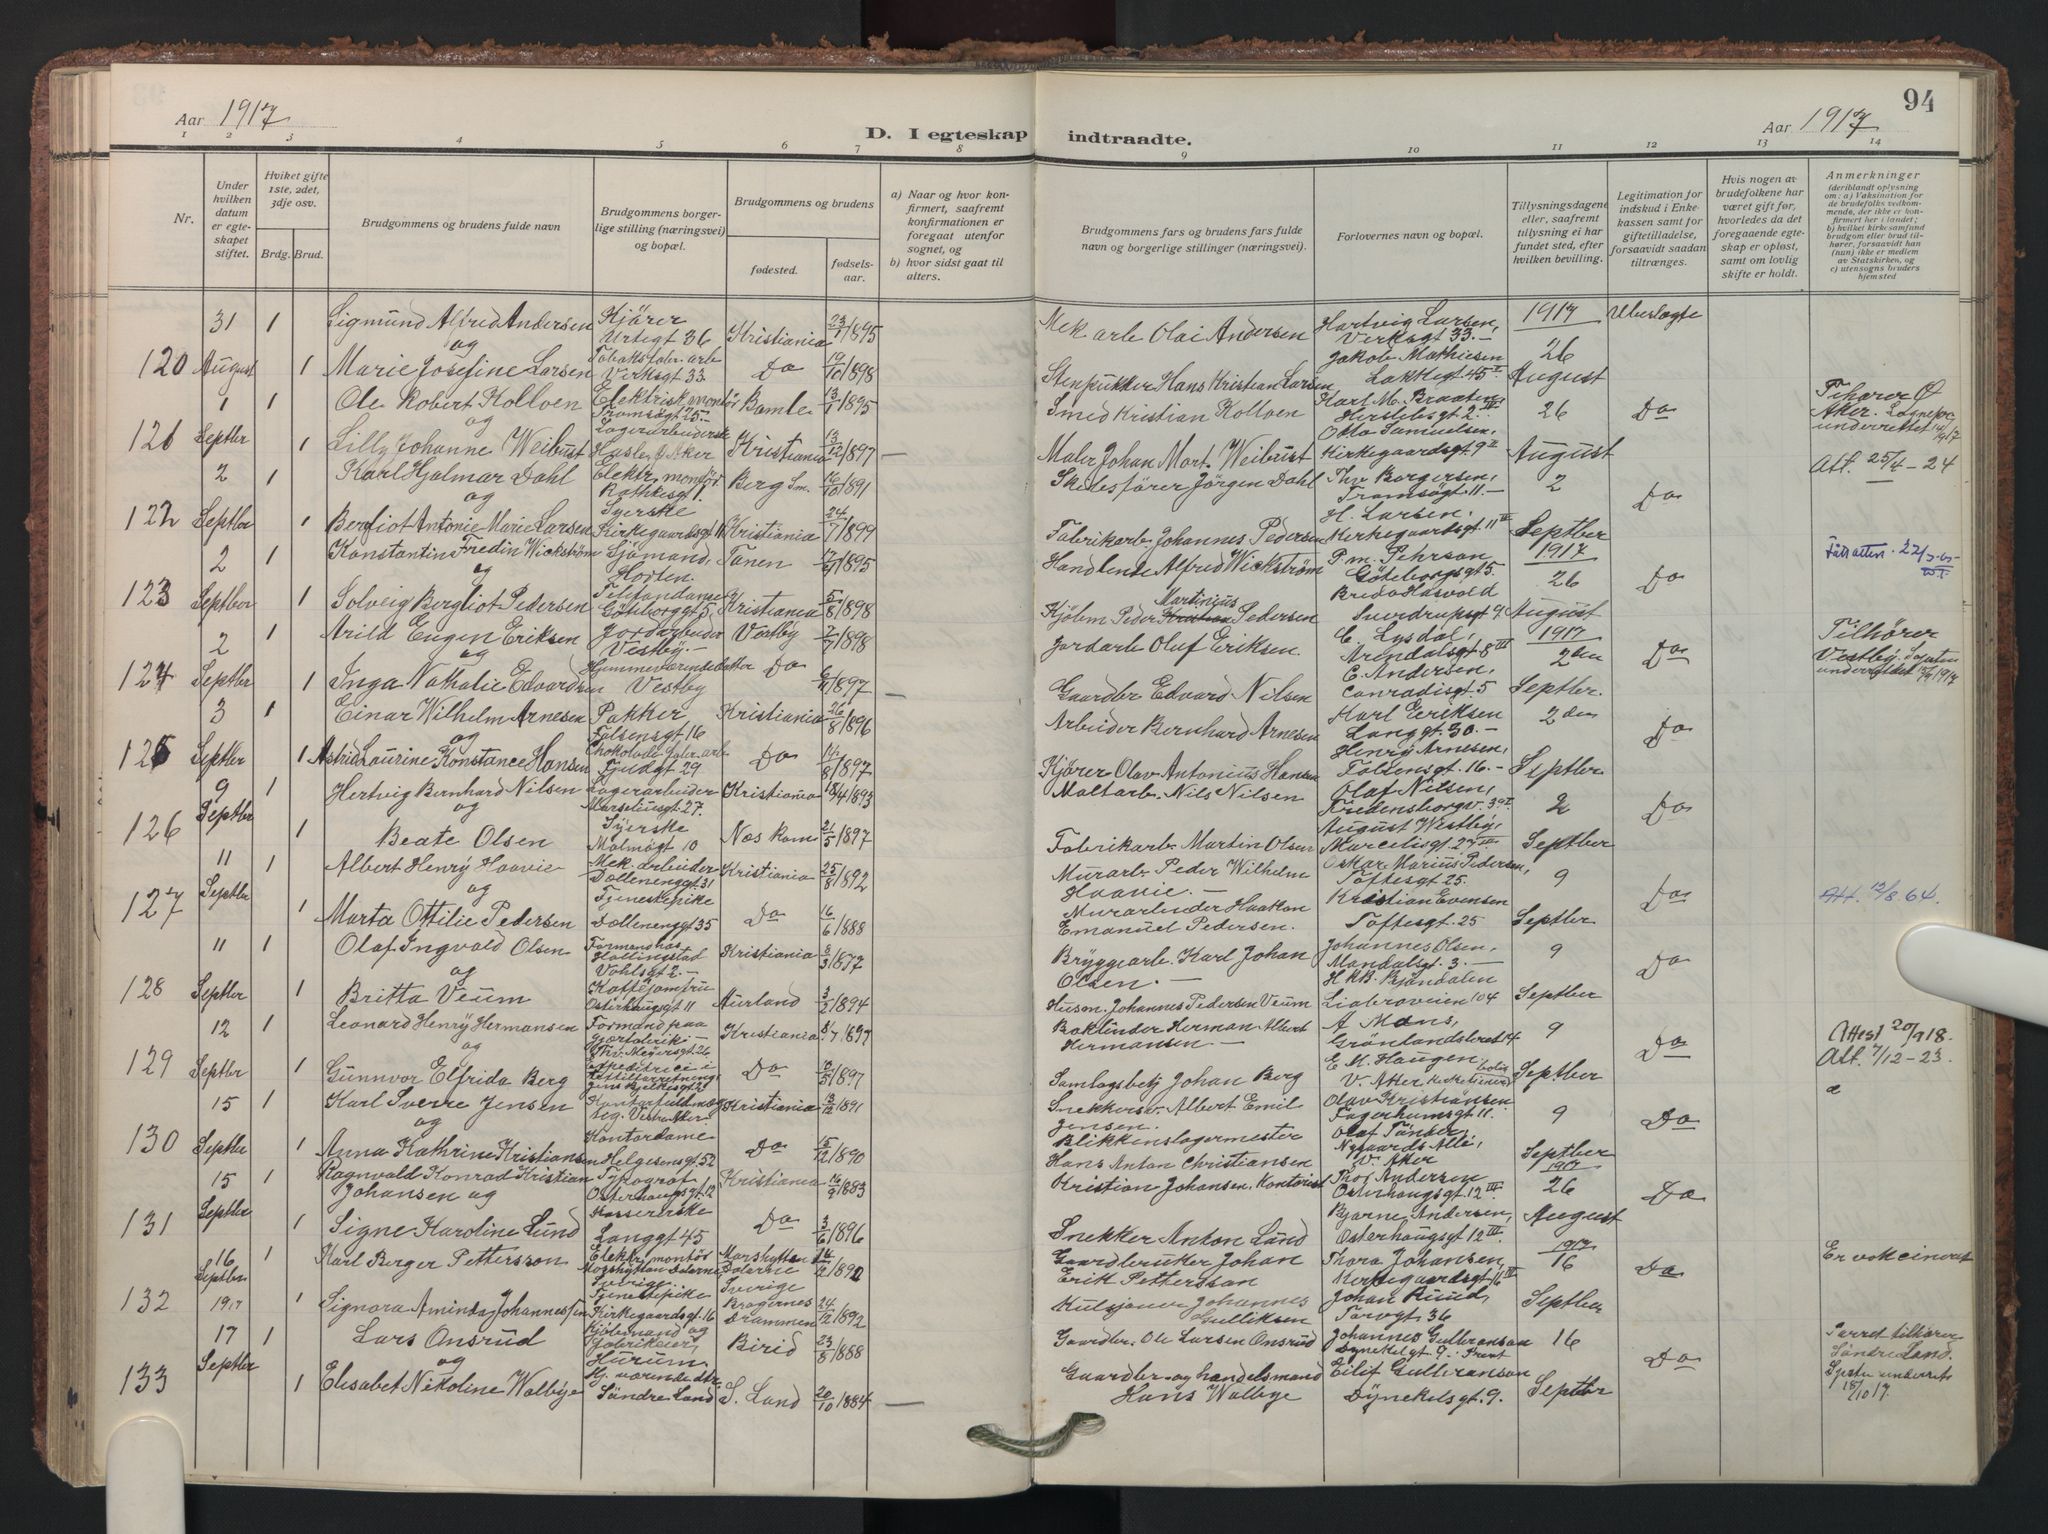 94
Aar 1917
Aar 1917
D. I egteskap indtraadte.
1 2 3 4 5 6 7 8 9 10 11 12 13 14
Nr.
Under hvilken datum er egteskapet stiftet.
Hviket gifte 1ste, 2det, 3dje osv.
Brdg. Brud.
Brudgommens og brudens fulde navn
Brudgommens borgerlige stilling (næringsvei) og bopæl.
Brudgommens og brudens
fødested.
fødselsaar.
a) Naar og hvor konfirmert, saafremt konfirmationen er foregaat utenfor sognet, og
b) hvor sidst gaat til alters.
Brudgommens fars og brudens fars fulde navn og borgerlige stillinger (næringsvei).
Forlovernes navn og bopæl.
Tillysningsdagene eller, saafremt tillysning ei har fundet sted, efter hvilken bevilling.
Legitimation for indskud i Enkekassen samt for giftetilladelse, forsaavidt saadan tiltrænges.
Hvis nogen av brudefolkene har været gift før, hvorledes da det foregaaende egteskap er opløst, samt om lovlig skifte er holdt.
Anmerkninger
(deriblandt oplysning om: a) Vaksination for de brudefolks vedkommende, der ikke er konfirmert her i landet;
b) hvilket kirkesamfund brudgom eller brud tilhører, forsaavidt han (hun) ikke er medlem av Statskirken, og
c) utensogns bruders hjemsted
120 31 August 1 Sigmund Alfred Andersen Kjører Urtegt 36 Kristiania 23/1 1895 Mek arb Olai Andersen Hartvig Larsen, Verksgt 33. 1917 Ubeslegte
og
1 Marie Josefine Larsen Tobaksfabr. arb Verksgt 33 Do 19/10 1898 Stenpukker Hans Kristian Larsen Jakob Mathiesen Lakkegt 45 II 26 August
121 1 Septber 1 Ole Robert Kollven Elektriskmontör Tromsögt 25 Bamle 13/1 1895 Smed Kristian Kollven Karl M. Braaten, Herslebsgt 2 III 26 Do Tilhører Ø Aker.
og
1 Lilly Johanne Weibust Lagerarbeiderske Hasle Ø Aker Kristiania 13/12 1897 Maler Johan Mart. Weibust Otto Samuelsen, Kirkegaardsgt 9 II August
122 2 Septber 1 Karl Hjalmar Dahl Elektr. montör Rathkesgt 1. Berg Sm. 16/10 1891 Skotesfører Jörgen Dahl Thv Borgersen, Tromsögt. 11. 2 Do Att. 25/4-24
og
1 Bergliot Antonie Marie Larsen Syerske Kirkegaardsgt 11 Kristiania 24/7 1899 Fabrikarb. Johannes Pedersen H. Larsen. Kirkegaardsgt 11 IV Septber
123 2 Septber 1 Konstantin Fredin Wickström Sjömand, Horten. Tanen 1895 Handlende Alfred Wickström P. m. Pehrson Göteborgsgt 5. 1917 26 Do
og
1 Solveig Bergliot Pedersen Telefondame Göteborggt 5 Kristiania 5/8 1898 Kjöbm Peder Martinius Pedersen Sverdrupsgt 9 August
124 2 Septber 1 Arild Eugen Eriksen Jordarbeider Vestby. Vestby 7/7 1898 Jordarb Oluf Eriksen. C. Lysdal, Arendalsgt 8 III 1917 2den Do Tilhörer Vestby.
og
1 Inga Nathalie Edvardsen Hjemmeværende datter Vestby Do 1897 Gaardbr Edvard Nilsen E. Andersen, Conradisgt. 5 Septber.
125 3 Septber 1 Einar Wilhelm Arnesen Pakker Falsensgt 16 Kristiania 26/8 1896 Arbeider Bernhard Arnesen Karl Eriksen Langgt 30. 2den Do
og
1 Astrid Laurine Konstance Hansen Chokoladefabr. arb Tjudgt 29 Do 14/8 1897 Kjörer Olav Antonius Hansen Henry Arnesen, Falsensgt. 16. Septber
126 9 Septber 1 Hertvig Bernhard Nilsen Lagerarbeider Marseliusgt. 27. Kristiania 18/4 1893 Maltarb. Nils Nilsen Olaf Nilsen, Fredensborgv. 39 I 2 Do
og
1 Beate Olsen Syerske Malmögt 10 Næs Rom 21/5 1897 Fabrikarb. Martin Olsen August Westby, Marcelisgt 27 III Septber
127 11 Septber 1 Albert Henry Haavie Mek. arbeider Dællenenggt 31 Kristiania 25/8 1892 Murarb. Peder Wilhelm Haavie. Oskar Marius Pedersen, Toftesgt 25. 9 Do Att. 12/8.64.
og
1 Marta Ottilie Pedersen Tjenestepike Dællenenggt 35 Do 16/6 1888 Murarbeider Haakon Emanuel Pedersen. Kristian Evensen Toftesgt. 25 Septber
128 11 Septber 1 Olaf Ingvald Olsen Formand hos Hallingstad Vahlsgt 2. Kristiania 3/3 1877 Bryggearb. Karl Johan Olsen. Johannes Olsen. Mandalsgt. 3. 9 Do
og
1 Britta Veum Kaffejomfru Osterhausgt 11 Aurland 3/2 1894 Husm. Johannes Pedersen Veum H.M.B. Bjöndalen Liabroveien 104 Septber
129 12 Septber 1 Leonard Henry Hermansen Formand paa gjærfabrik Thv. Meyersgt. 26 Kristiania 8/7 1897 Bokbinder Herman Albert Hermansen A Mons, Grönlandsleret 14 9 Do Attest 20/9 18. Att. 7/12-23.
og
1 Gunnvor Elfrida Berg Do 1897 Samlagsbetj Johan Berg E. M. Haugen V. Aker Septber
130 15 Septber 1 Karl Sverre Jensen Kristiania 13/12 1891 Snekkersv. Albert Emil Jensen. Olav Kristiansen Fagerheimsgt 11. 9 Do
og
1 Anna Kathrine Kristiansen Kontordame Helgesensgt. 52 Do 15/12 1890 Blikkenslagermester Hans Anton Christiansen Olaf Tänder, Nygaards Allé, V. Aker Septber
131 15 Septber 1 Ragnvald Konrad Kristian Johansen og Typograf Osterhausgt 12 Kristiania 16/9 1883 Kristian Johansen. Kontorist Thor Andersen Osterhausgt 12 III 1917 26 Do
1 Signe Karoline Lund Kassererske Langgt 45 Do 3/6 1896 Snekker Anton Lund Bjarne Andersen, Osterhausgt 12 III August
132 16 Septber 1917 1 Karl Birger Pettersson Elektr. montör Morshyttan Dalarne Sverige Morshyttan Dalarne Sverige 14/2 1892 Gaardbruker Johan Erik Pettersson Thora Johansen, Kirkegaardsgt 16 IV 1917 16 Do Er vokcineret
1 Signora Aminda Johannessen Tjenestepike Kirkegaardsgt. 16 Bragernes Drammen 24/12 1892 Kulsjauer Johannes Gulliksen Johan Ruud, Torvgt 36 Septber
133 17 Septber 1 Lars Onsrud Kjöbmand og fabrikeier, Hurum. Birid 23/8 1888 Gaardbr. Ole Larsen Onsrud Johannes Gulbranson Dynekilgt 9. 16 Do Parret tilhører Söndre Land.
og
1 Elisabet Nikoline Walbye Hj. værende dtr. Söndre Land S. Land 20/10 1884 Gaardbr. og handelsmand Hans Walbye Eilif Gulbranson Dynekilsgt. 9. Septber 18/10 17.